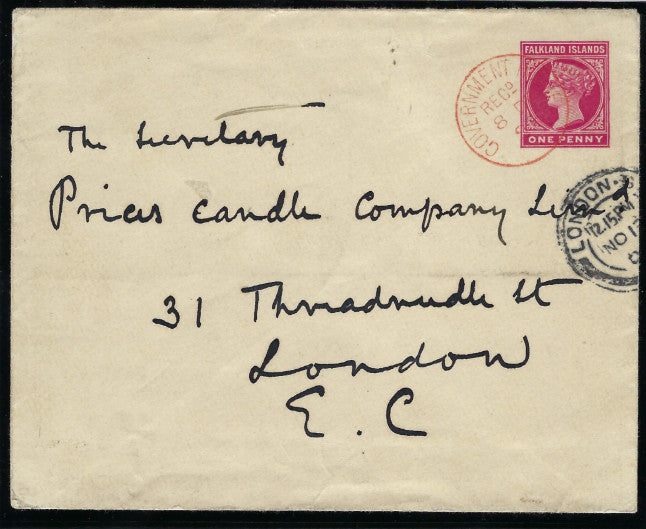 FALKLAND ISLANDS
ONE PENNY
GOVERNMENT
REC
8
LONDON
12.15PM
NO 1
The Secretary
Prices Candle Company
31 Threadneedle St
London
E. C